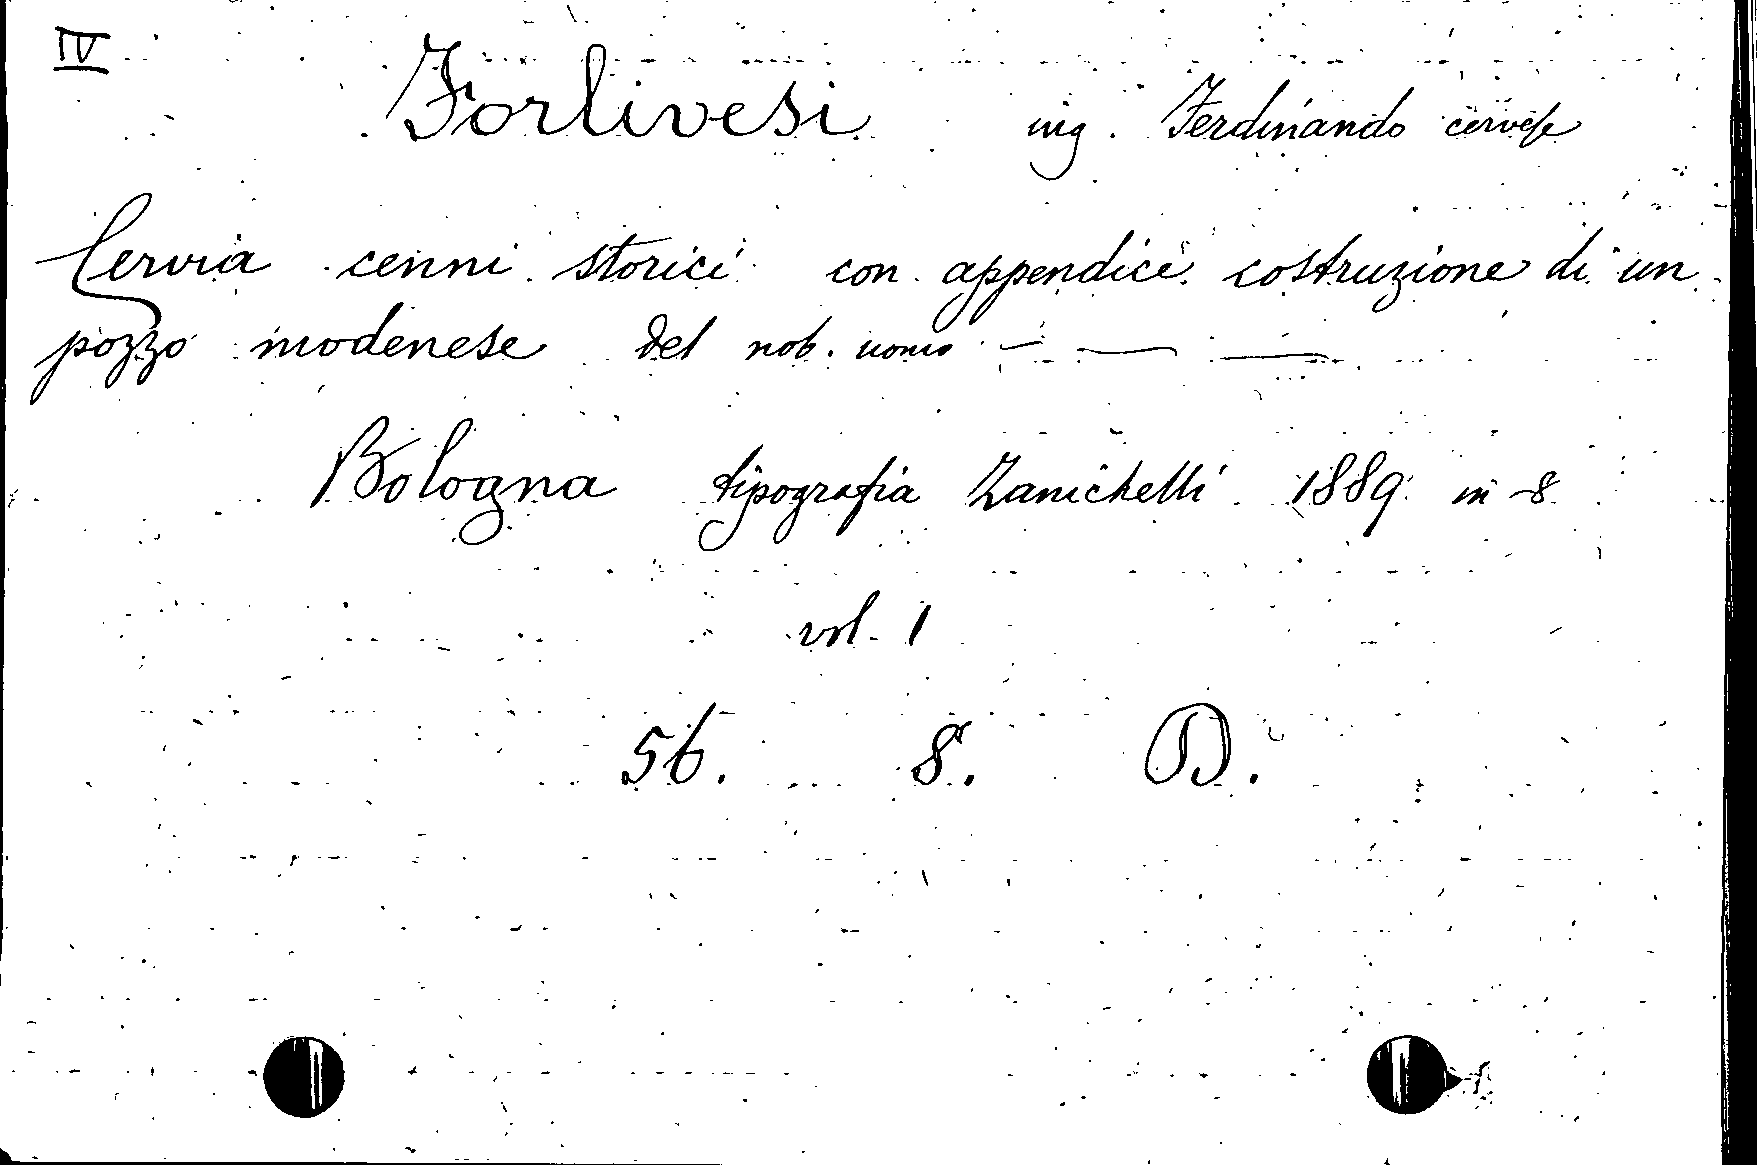 IV
Forlivesi ing. Ferdinando cervese
Cervia cenni storici con appendice costruzione di un
pozzo modenese del nob. uomo — — —
Bologna tipografia Zanichelli 1889 in-8
vol. 1
56. 8. D.